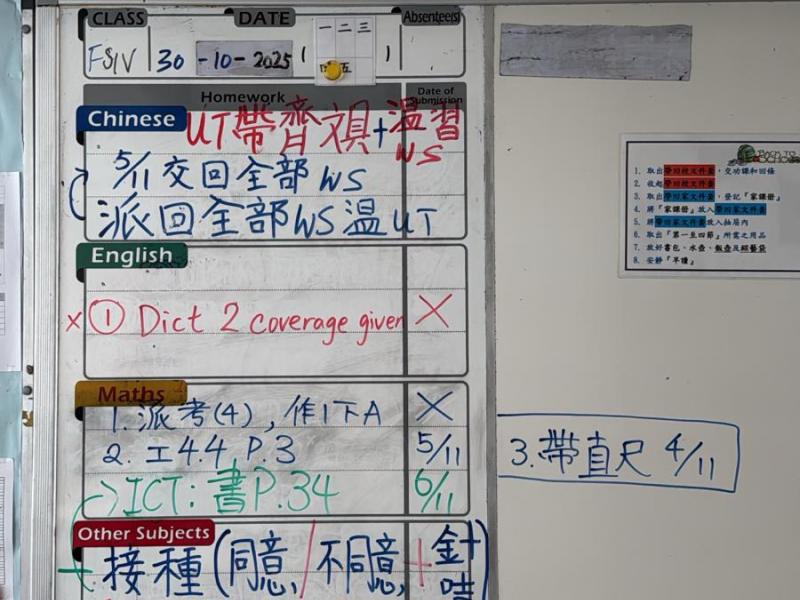 CLASS DATE Absentee(s)
30 -10-2025 (
一 二 三
五
Homework Date of Submission
Chinese UT帶齊+溫習
WS
5/11 交回全部WS
派回全部WS溫UT
English
× ① Dict 2 coverage given ×
Maths
1. 派考(4), 作1下A ×
2. 工4.4, P.3 5/11
ICT: 書P.34 6/11
Other Subjects
接種(同意/不同意,+針
3.帶直尺 4/11
BACK TO SCHOOL
1. 取出帶回校文件套,交功課和回條
2. 收起帶回校文件套
3. 取出帶回家文件套,登記『家課冊』
4. 將『家課冊』放入帶回家文件套
5. 將帶回家文件套放入抽屜內
6. 取出『第一至四節』所需之用品
7. 放好書包、水壺、飯壺及
8. 安靜『早讀』